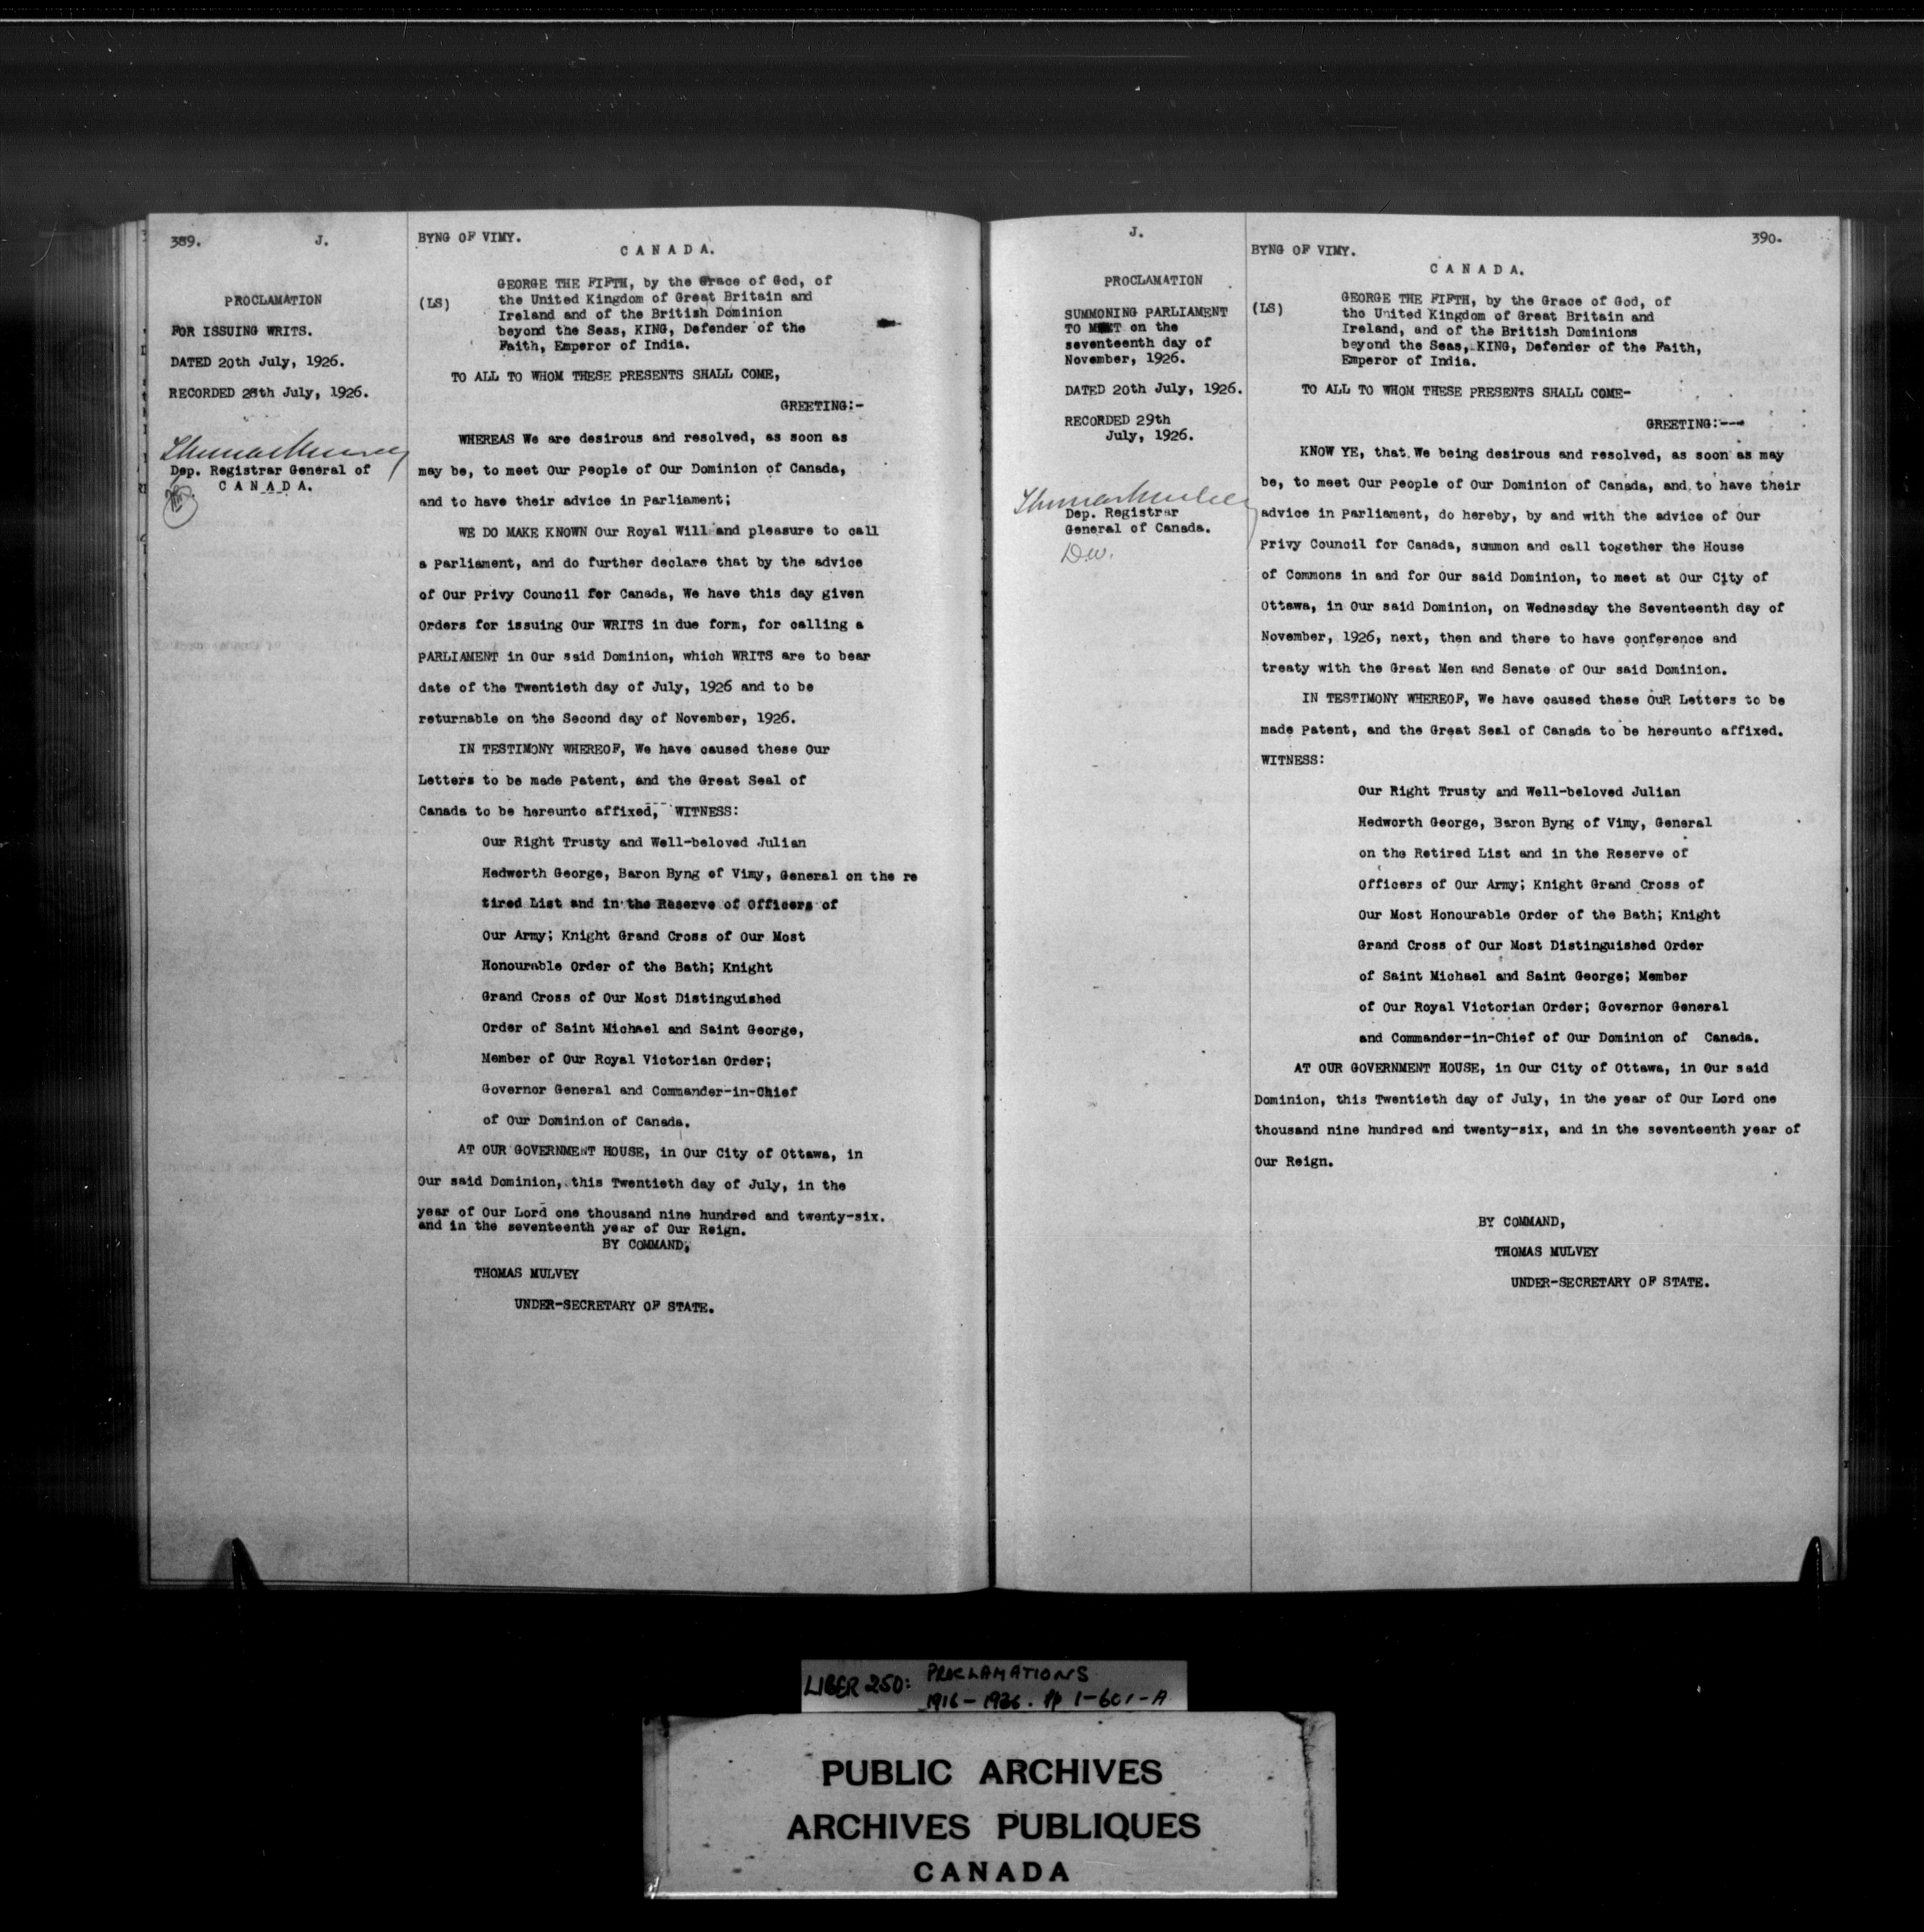 389.
J.
PROCLAMATION
FOR ISSUING WRITS.
DATED 20th July, 1926.
RECORDED 28th July, 1926.
Thomas Mulvey
Dep. Registrar General of
C A N A D A.
BYNG OF VIMY.
C A N A D A.
(LS)
GEORGE THE FIFTH, by the Grace of God, of
the United Kingdom of Great Britain and
Ireland and of the British Dominion
beyond the Seas, KING, Defender of the
Faith, Emperor of India.
TO ALL TO WHOM THESE PRESENTS SHALL COME,
GREETING:-
WHEREAS We are desirous and resolved, as soon as
may be, to meet Our People of Our Dominion of Canada,
and to have their advice in Parliament;
WE DO MAKE KNOWN Our Royal Will and pleasure to call
a Parliament, and do further declare that by the advice
of Our Privy Council for Canada, We have this day given
Orders for issuing Our WRITS in due form, for calling a
PARLIAMENT in Our said Dominion, which WRITS are to bear
date of the Twentieth day of July, 1926 and to be
returnable on the Second day of November, 1926.
IN TESTIMONY WHEREOF, We have caused these Our
Letters to be made Patent, and the Great Seal of
Canada to be hereunto affixed, WITNESS:
Our Right Trusty and Well-beloved Julian
Hedworth George, Baron Byng of Vimy, General on the re
tired List and in the Reserve of Officers of
Our Army; Knight Grand Cross of Our Most
Honourable Order of the Bath; Knight
Grand Cross of Our Most Distinguished
Order of Saint Michael and Saint George,
Member of Our Royal Victorian Order;
Governor General and Commander-in-Chief
of Our Dominion of Canada.
AT OUR GOVERNMENT HOUSE, in Our City of Ottawa, in
Our said Dominion, this Twentieth day of July, in the
year of Our Lord one thousand nine hundred and twenty-six.
and in the seventeenth year of Our Reign.
BY COMMAND,
THOMAS MULVEY
UNDER-SECRETARY OF STATE.
J.
PROCLAMATION
SUMMONING PARLIAMENT
TO MEET on the
seventeenth day of
November, 1926.
DATED 20th July, 1926.
RECORDED 29th
July, 1926.
Thomas Mulvey
Dep. Registrar
General of Canada.
D.W.
390.
BYNG OF VIMY.
C A N A D A.
(LS)
GEORGE THE FIFTH, by the Grace of God, of
the United Kingdom of Great Britain and
Ireland, and of the British Dominions
beyond the Seas, KING, Defender of the Faith,
Emperor of India.
TO ALL TO WHOM THESE PRESENTS SHALL COME-
GREETING:---
KNOW YE, that We being desirous and resolved, as soon as may
be, to meet Our People of Our Dominion of Canada, and to have their
advice in Parliament, do hereby, by and with the advice of Our
Privy Council for Canada, summon and call together the House
of Commons in and for Our said Dominion, to meet at Our City of
Ottawa, in Our said Dominion, on Wednesday the Seventeenth day of
November, 1926, next, then and there to have conference and
treaty with the Great Men and Senate of Our said Dominion.
IN TESTIMONY WHEREOF, We have caused these OuR Letters to be
made Patent, and the Great Seal of Canada to be hereunto affixed.
WITNESS:
Our Right Trusty and Well-beloved Julian
Hedworth George, Baron Byng of Vimy, General
on the Retired List and in the Reserve of
Officers of Our Army; Knight Grand Cross of
Our Most Honourable Order of the Bath; Knight
Grand Cross of Our Most Distinguished Order
of Saint Michael and Saint George; Member
of Our Royal Victorian Order; Governor General
and Commander-in-Chief of Our Dominion of Canada.
AT OUR GOVERNMENT HOUSE, in Our City of Ottawa, in Our said
Dominion, this Twentieth day of July, in the year of Our Lord one
thousand nine hundred and twenty-six, and in the seventeenth year of
Our Reign.
BY COMMAND,
THOMAS MULVEY
UNDER-SECRETARY OF STATE.
LIBER 250: PROCLAMATIONS
1916-1936. pp 1-601-A
PUBLIC ARCHIVES
ARCHIVES PUBLIQUES
CANADA